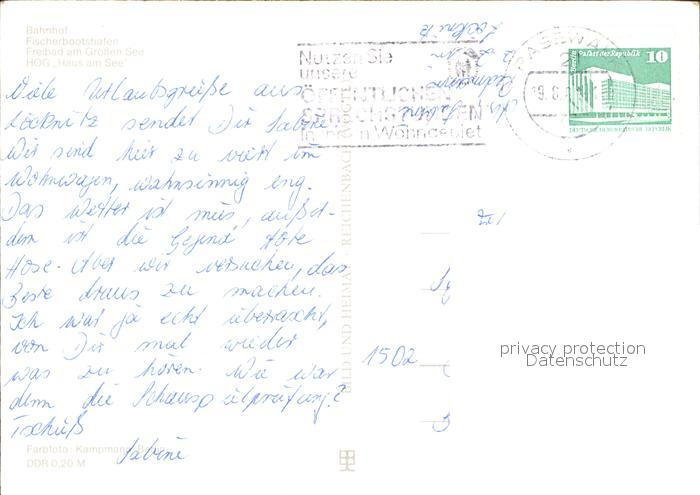 Bahnhof
Fischerbootshafen
Freibad am Großen See
HOG „Haus am See"
Viele Urlaubsgrüße aus
Löcknitz sendet Dir Sabine
Wir sind hier zu viert im
Wohnwagen, wahnsinnig eng.
Das Wetter ist mies, außer-
dem ist die Gegend tote
Hose. Aber wir versuchen, das
Beste draus zu machen.
Ich war ja echt überrascht,
von Dir mal wieder
was zu hören. Wie war
denn die Schauspielprüfung?
Tschüß
Sabine
Farbfoto: Kampmann, Berlin
DDR 0,20 M
BILD UND HEIMAT REICHENBACH
Nutzen Sie
unsere
ÖFFENTLICHEN
in Ihrem Wohngebiet
PASEWALK
Palast der Republik 10
DEUTSCHE DEMOKRATISCHE REPUBLIK
Löcknitz
1502
privacy protection
Datenschutz